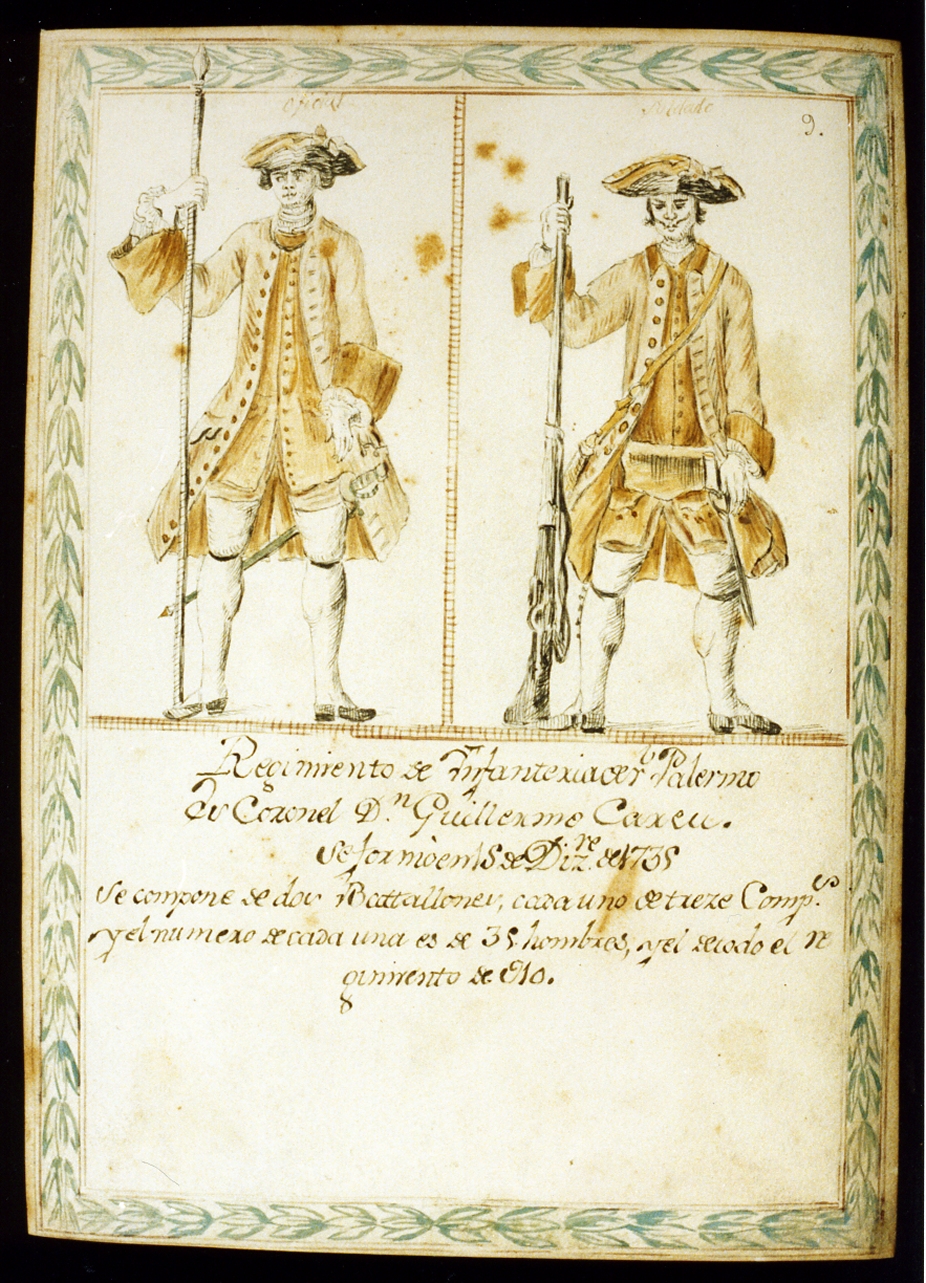 oficial
Soldado
9.
Regimiento de Ynfanteria de Rl Palermo
Su Coronel D.n Guillermo Careu.
Se formò en 15 de Diz.re de 1735
Se compone de dos Battallones, cada uno de treze Comp.s
y el numero de cada una es de 35 hombres, y el de todo el re
gimiento de 910.